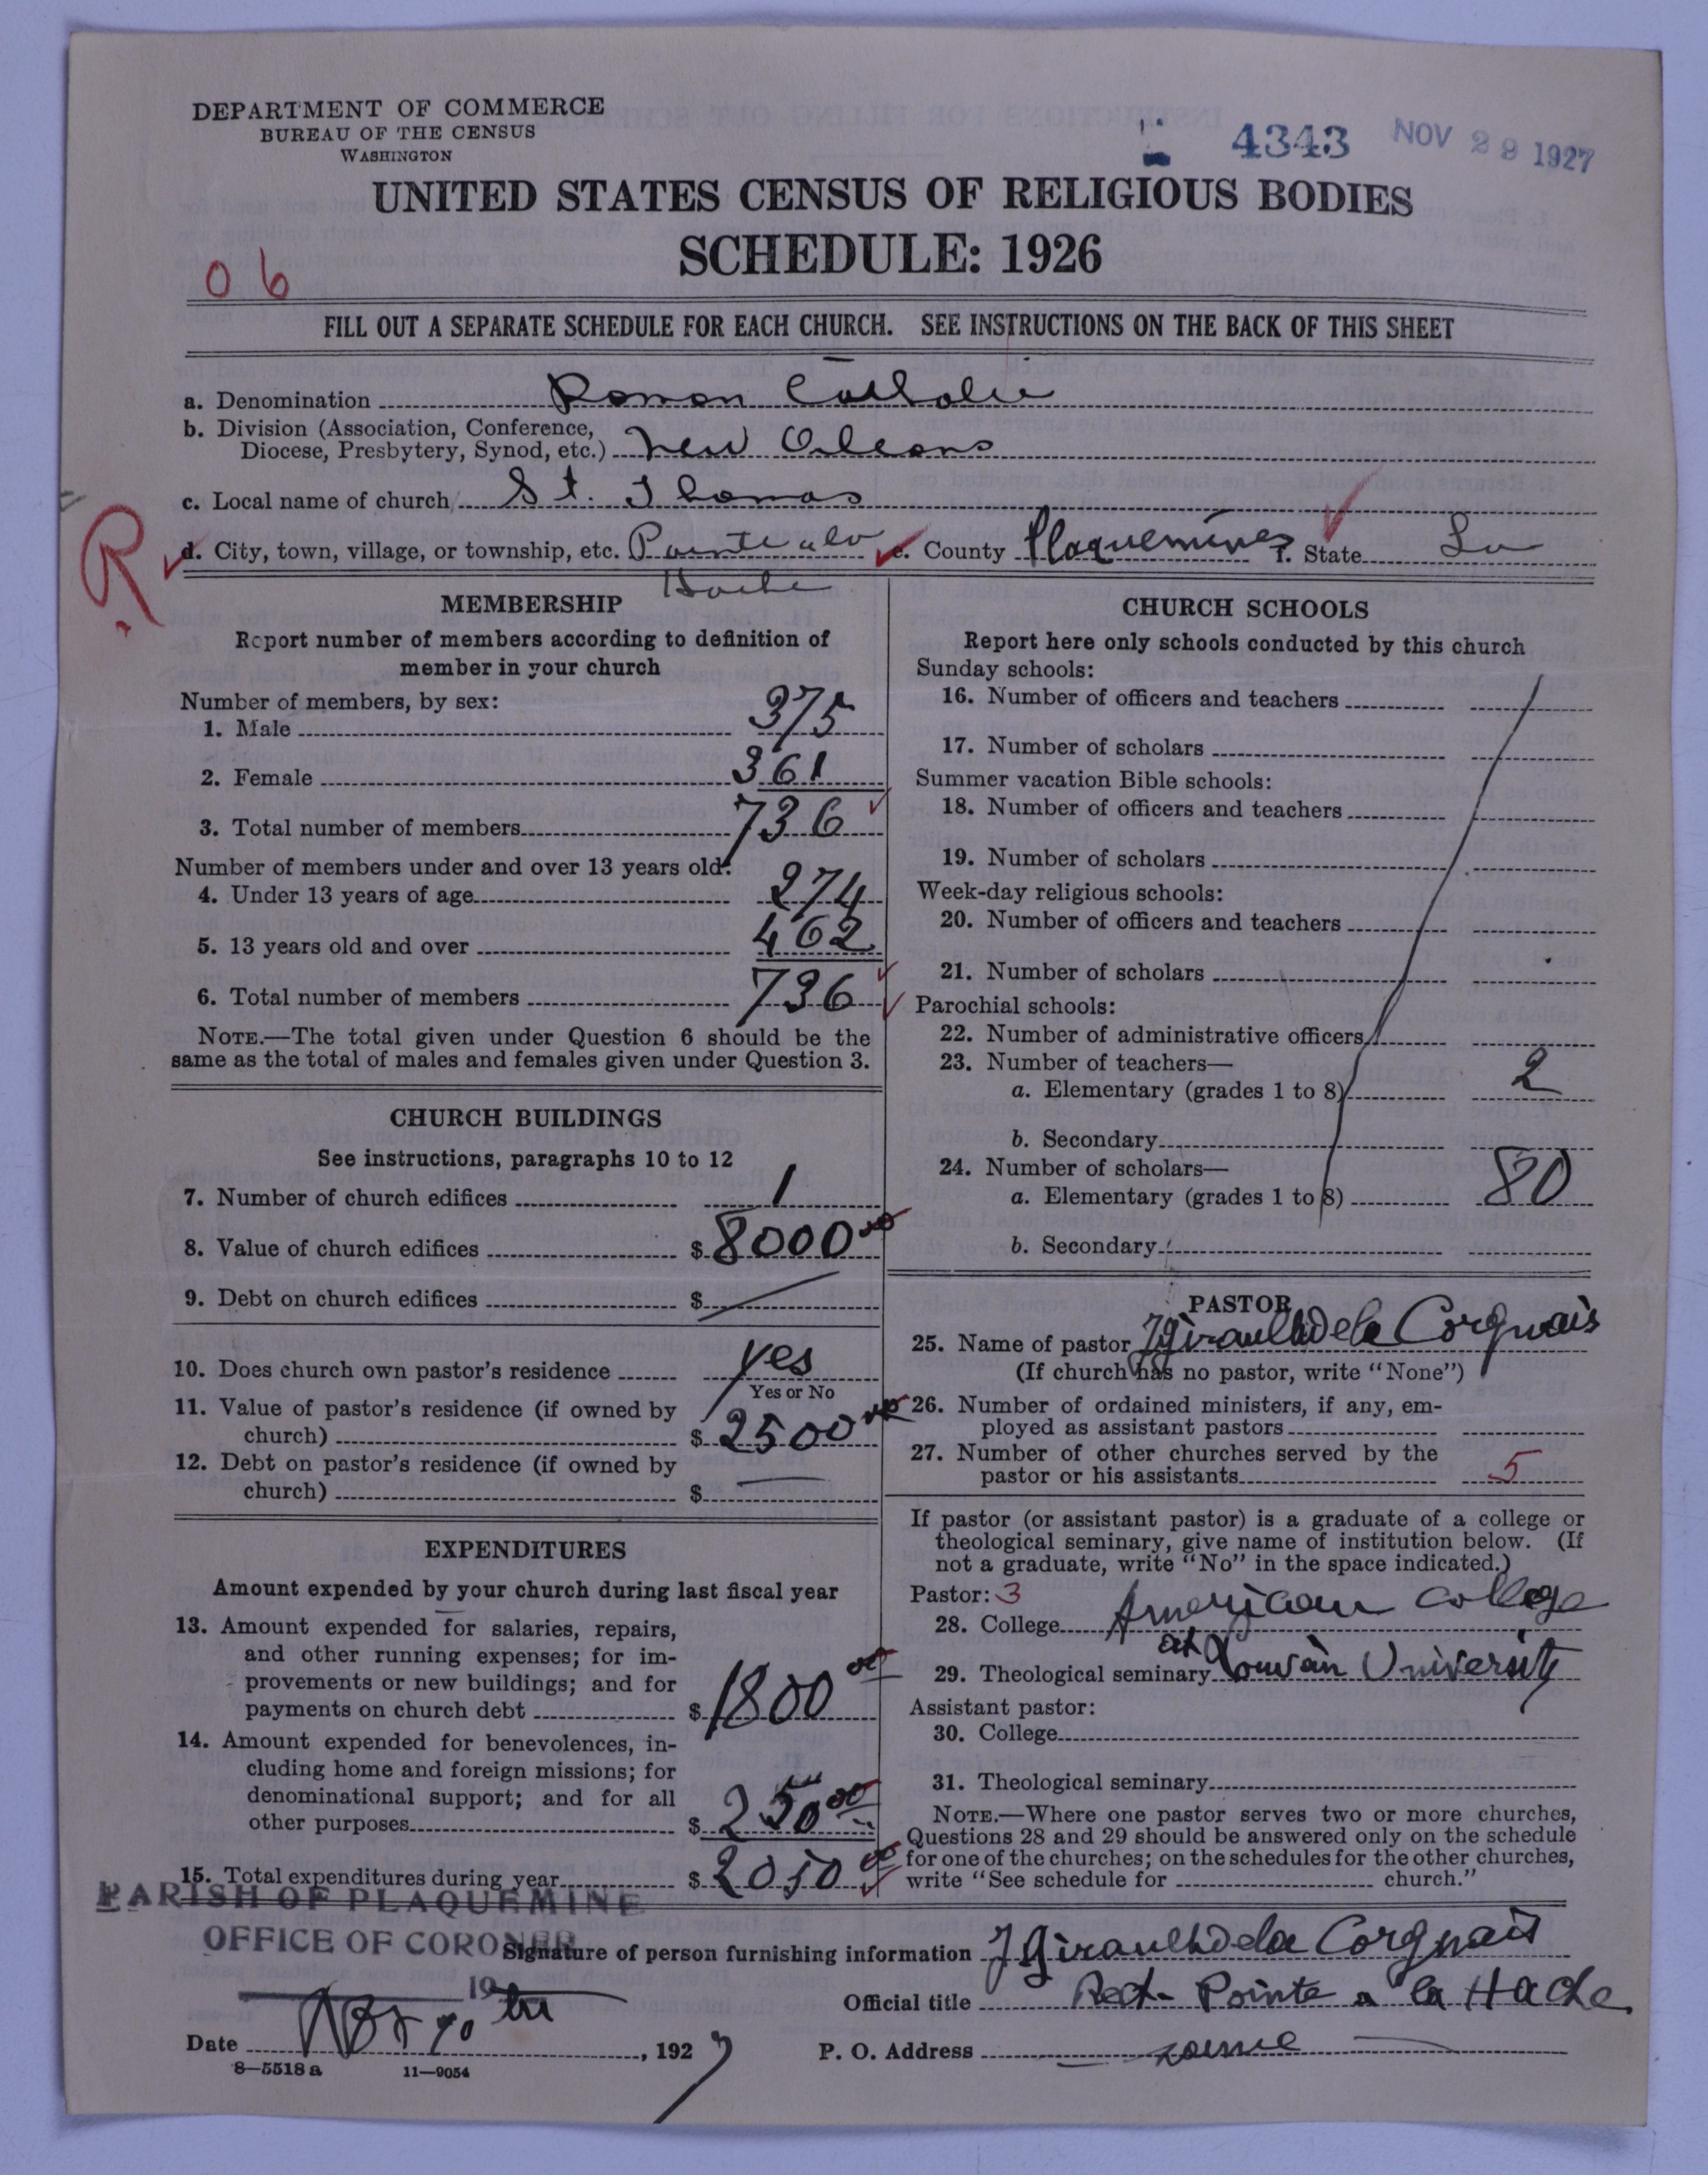 DEPARTMENT OF COMMERCE
BUREAU OF THE CENSUS
WASHINGTON
4343 NOV 29 1927
UNITED STATES CENSUS OF RELIGIOUS BODIES
SCHEDULE: 1926
06
FILL OUT A SEPARATE SCHEDULE FOR EACH CHURCH. SEE INSTRUCTIONS ON THE BACK OF THIS SHEET
a. Denomination Roman Catholic
b. Division (Association, Conference,
Diocese, Presbytery, Synod, etc.) New Orleans
c. Local name of church St. Thomas
R
d. City, town, village, or township, etc. Pointe a la e. County Plaquemines f. State La
Hache
MEMBERSHIP
Report number of members according to definition of
member in your church
Number of members, by sex:
1. Male 375
2. Female 361
3. Total number of members 736
Number of members under and over 13 years old:
4. Under 13 years of age 274
5. 13 years old and over 462
6. Total number of members 736
NOTE.—The total given under Question 6 should be the
same as the total of males and females given under Question 3.
CHURCH BUILDINGS
See instructions, paragraphs 10 to 12
7. Number of church edifices 1
8. Value of church edifices $ 8000 00
9. Debt on church edifices $
10. Does church own pastor's residence yes
Yes or No
11. Value of pastor's residence (if owned by
church) $ 2500 00
12. Debt on pastor's residence (if owned by
church) $
EXPENDITURES
Amount expended by your church during last fiscal year
13. Amount expended for salaries, repairs,
and other running expenses; for im-
provements or new buildings; and for
payments on church debt $ 1800 00
14. Amount expended for benevolences, in-
cluding home and foreign missions; for
denominational support; and for all
other purposes $ 250 00
15. Total expenditures during year $ 2050 00
CHURCH SCHOOLS
Report here only schools conducted by this church
Sunday schools:
16. Number of officers and teachers
17. Number of scholars
Summer vacation Bible schools:
18. Number of officers and teachers
19. Number of scholars
Week-day religious schools:
20. Number of officers and teachers
21. Number of scholars
Parochial schools:
22. Number of administrative officers
23. Number of teachers—
a. Elementary (grades 1 to 8) 2
b. Secondary
24. Number of scholars—
a. Elementary (grades 1 to 8) 80
b. Secondary
PASTOR
25. Name of pastor J Girault de la Corgnais
(If church has no pastor, write "None")
26. Number of ordained ministers, if any, em-
ployed as assistant pastors
27. Number of other churches served by the
pastor or his assistants 5
If pastor (or assistant pastor) is a graduate of a college or
theological seminary, give name of institution below. (If
not a graduate, write "No" in the space indicated.)
Pastor: 3
28. College American College
at
29. Theological seminary Louvain University
Assistant pastor:
30. College
31. Theological seminary
NOTE.—Where one pastor serves two or more churches,
Questions 28 and 29 should be answered only on the schedule
for one of the churches; on the schedules for the other churches,
write "See schedule for church."
PARISH OF PLAQUEMINE
OFFICE OF CORONER
19
Signature of person furnishing information J Girault de la Corgnais
Official title Rect. Pointe a la Hache
Date 192 7 P. O. Address same
8—5518 a 11—9054